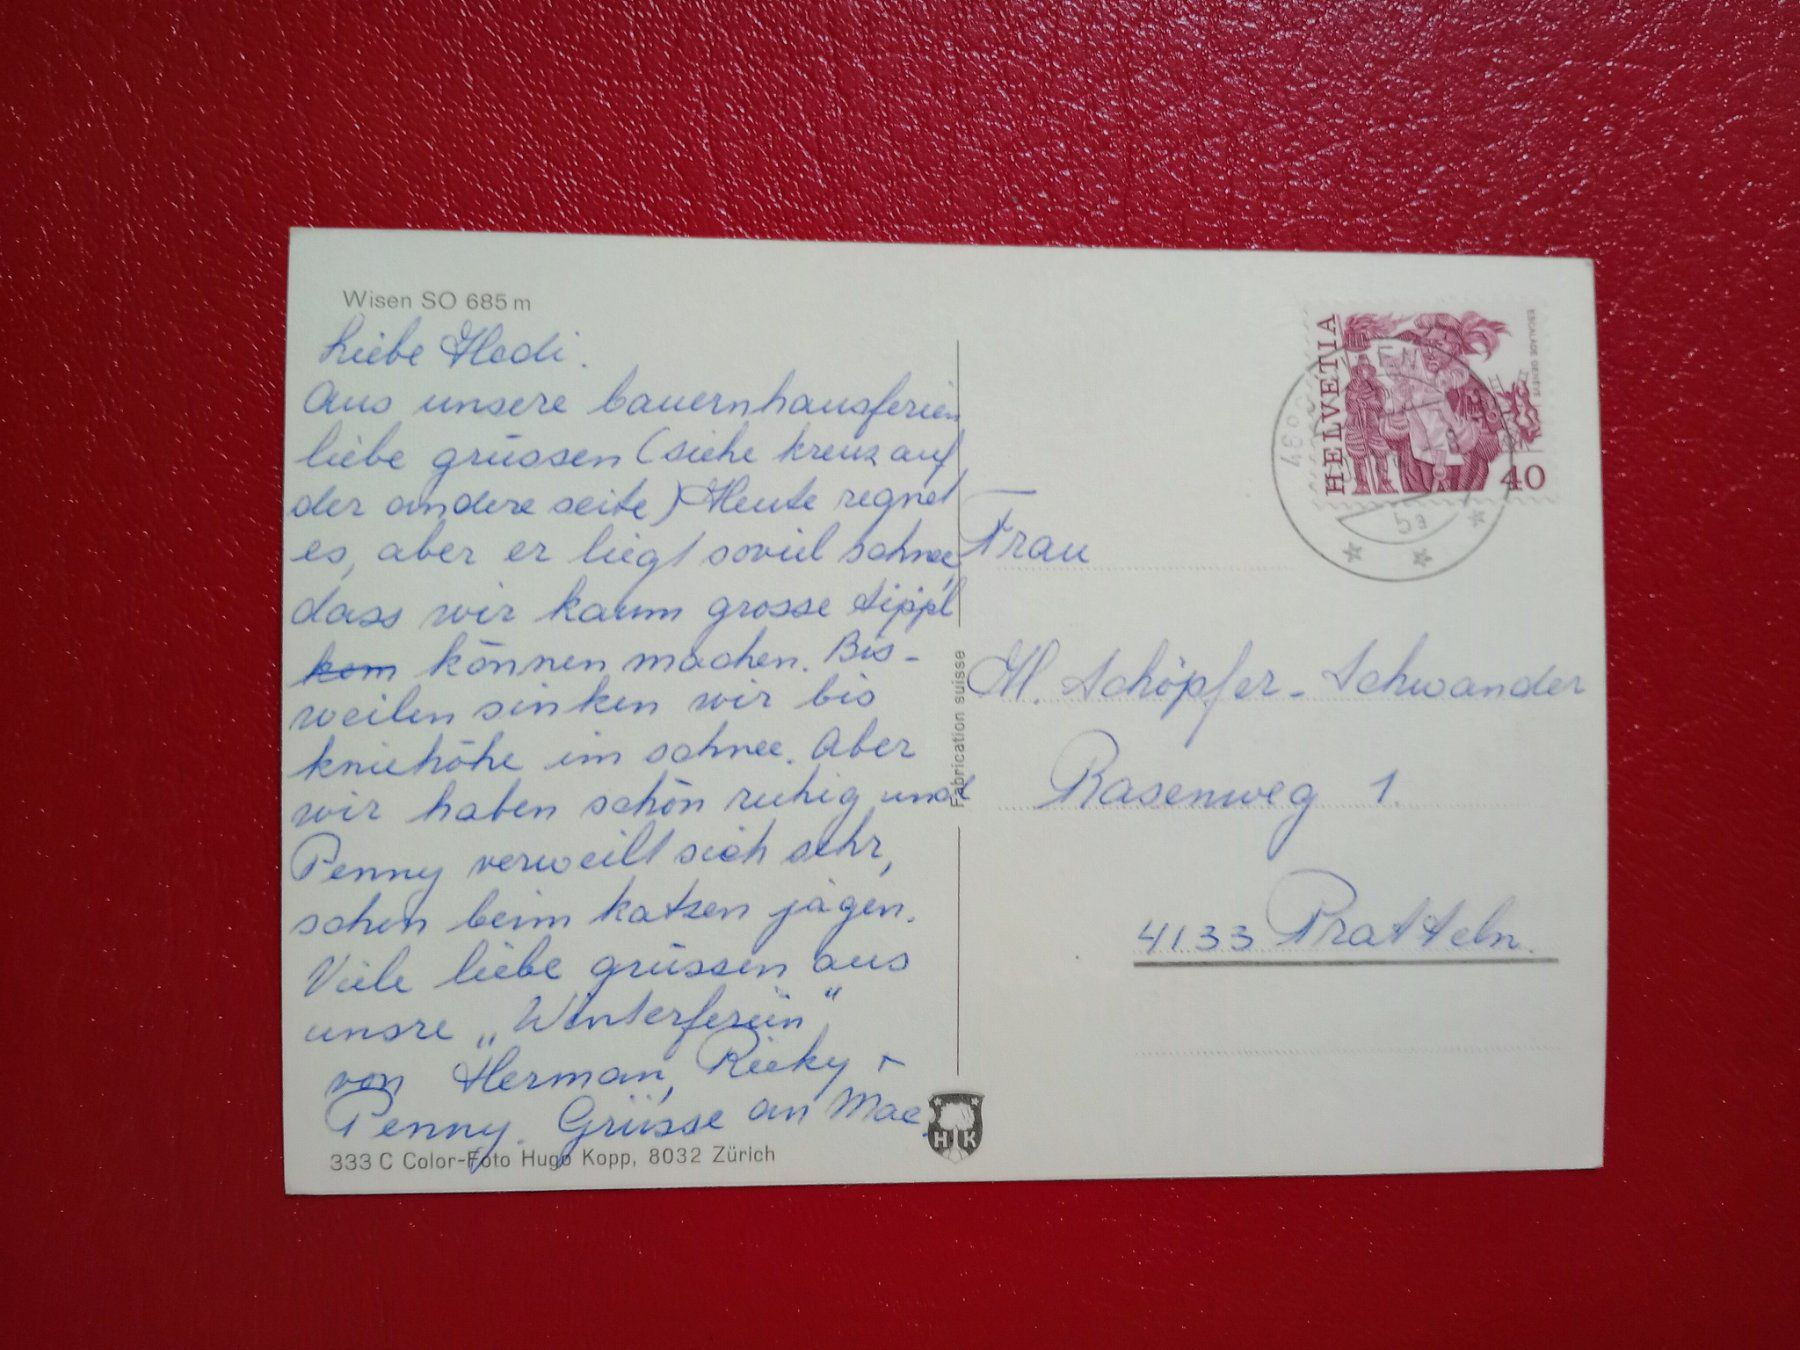 Wisen SO 685 m
Liebe Hedi.
Aus unsere bauernhausferien
liebe grüssen (siehe kreuz auf
der andere seite) Heute regnet
es, aber er liegt soviel schnee,
dass wir kaum grosse tippl
kom können machen. Bis-
weilen sinken wir bis
kniehöhe im schnee. Aber
wir haben schön ruhig und
Penny verweilt sich sehr,
schon beim katzen jagen.
Viele liebe grüssen aus
unsre „Winterferien"
von Herman, Ricky +
Penny. Grüsse an Mae.
333 C Color-Foto Hugo Kopp, 8032 Zürich
Fabrication suisse
HK
HELVETIA
ESCALADE GENÈVE
40
Frau
H. Schöpfer-Schwander
Rasenweg 1.
4133 Pratteln.